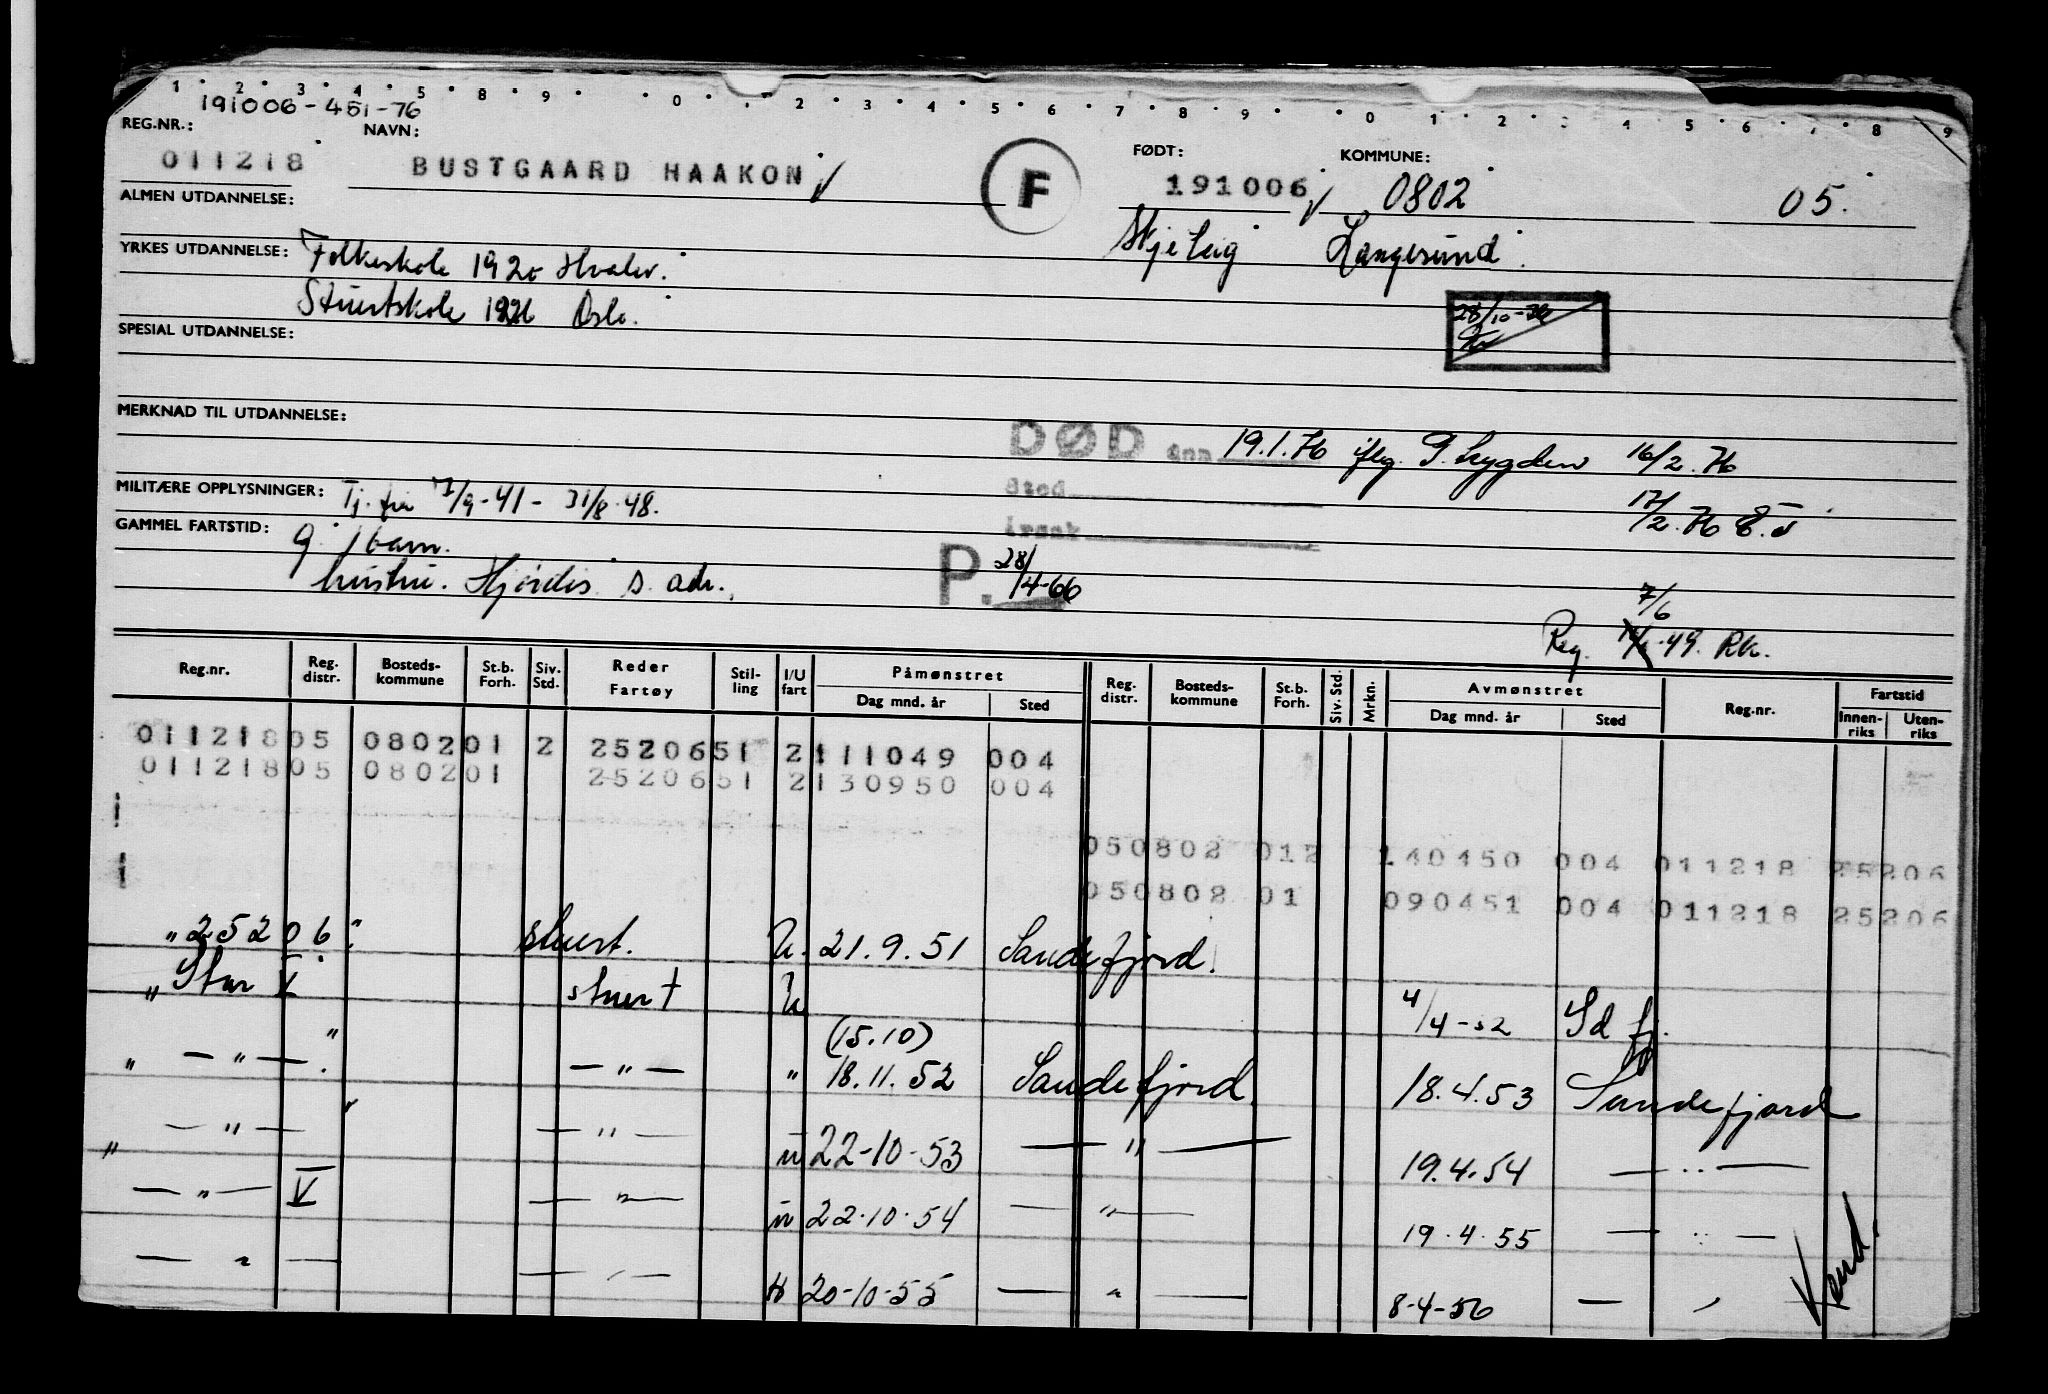 1 2 3 4 5 8 9 0 2 3 4 5 6 7 8 9 0 1 2 3 4 5 6 7 8 9
191006-451-76
REG.NR.: NAVN: FØDT: KOMMUNE:
011218 BUSTGAARD HAAKON F 191006 0802 05
ALMEN UTDANNELSE:
YRKES UTDANNELSE: Folkeskole 1920 Hvaler. Langesund
Stuertskole 1926 Oslo.
SPESIAL UTDANNELSE:
MERKNAD TIL UTDANNELSE:
DØD den 19.1.76 iflg. 16/2.76
MILITÆRE OPPLYSNINGER: Tj. fra /9-41 - 31/8-48. Sted
17/2.76
GAMMEL FARTSTID: g. 1 barn. Årsak
hustru. Hjørdis s. adr. P. 28/4-66
7/6
Reg. -49. Rk.
Reg.nr. Reg. distr. Bosteds-kommune St.b. Forh. Siv. Std. Reder Fartøy Stil-ling I/U fart Påmønstret Dag mnd. år Sted Reg. distr. Bosteds-kommune St.b. Forh. Siv. Std. Mrkn. Avmønstret Dag mnd. år Sted Reg.nr. Fartstid Innen-riks Uten-riks
011218 05 0802 01 2 25206 51 2 111049 004
011218 05 0802 01 25206 51 2 130950 004
05 0802 01 2 140450 004 011218 25206
05 0802 01 090451 004 011218 25206
" 25206 " stuert. U. 21.9.51 Sandefjord.
" Star I stuert U 4/4-52 Sdfj.
(15.10)
" — " — " — " — " 18.11.52 Sandefjord 18.4.53 Sandefjord
— " — — " — u 22-10-53 — " — 19.4.54 — " —
" — " — V — " — u 22.10.54 — " — 19.4.55 — " —
— " — — " — U 20-10-55 — " — 8-4-56 — "
Vend.